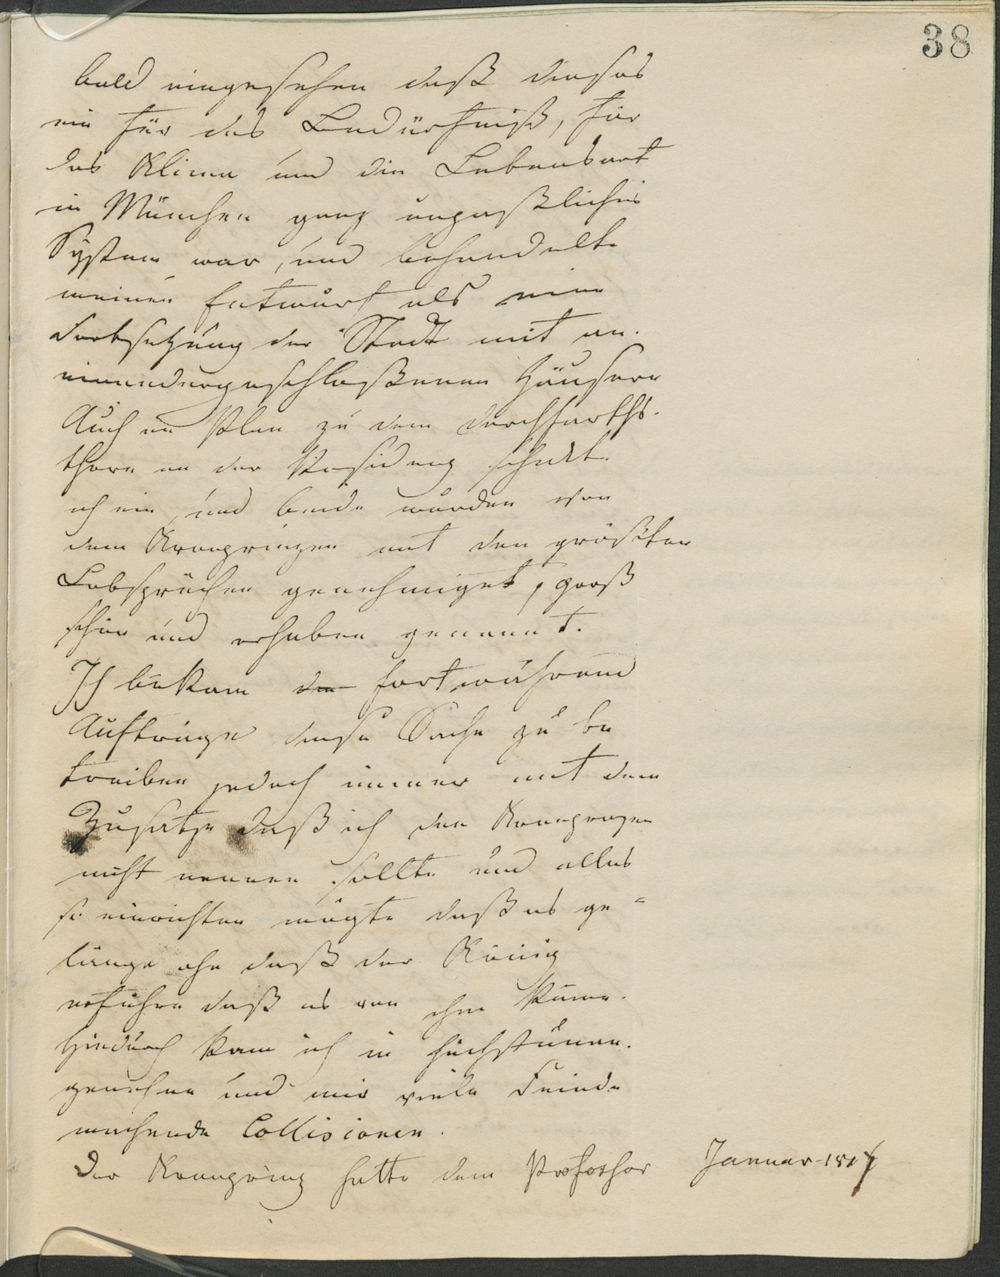 38
bald eingesehen daß dieses
ein für das Bedürfniß, für
das Klima und die Lebensart
in München ganz unpaßliches
System war, und behandelte
meinen Entwurf als eine
Fortsetzung der Stadt mit an-
einandergeschloßenen Häusern
Auch en Plan zu dem Durchfarths-
thore an der Residenz schickt.
ich ein, und beide wurden von
dem Kronprinzen mit den größten
Lobsprüchen genehmiget, groß
schön und erhaben genannt.
Ich bekam fortwährend
Aufträge diese Sache zu be
treiben jedoch immer mit dem
Zusatze daß ich den Kronprinzen
nicht nennen sollte und alles
so einrichten mögte daß es ge-
länge ohne daß der König
erführe daß es von ihm käme.
Hiedurch kam ich in höchst unan-
genehme und mir viele Feinde
machende Collisionen.
Der Kronprinz hatte dem Professor
Januar 1817